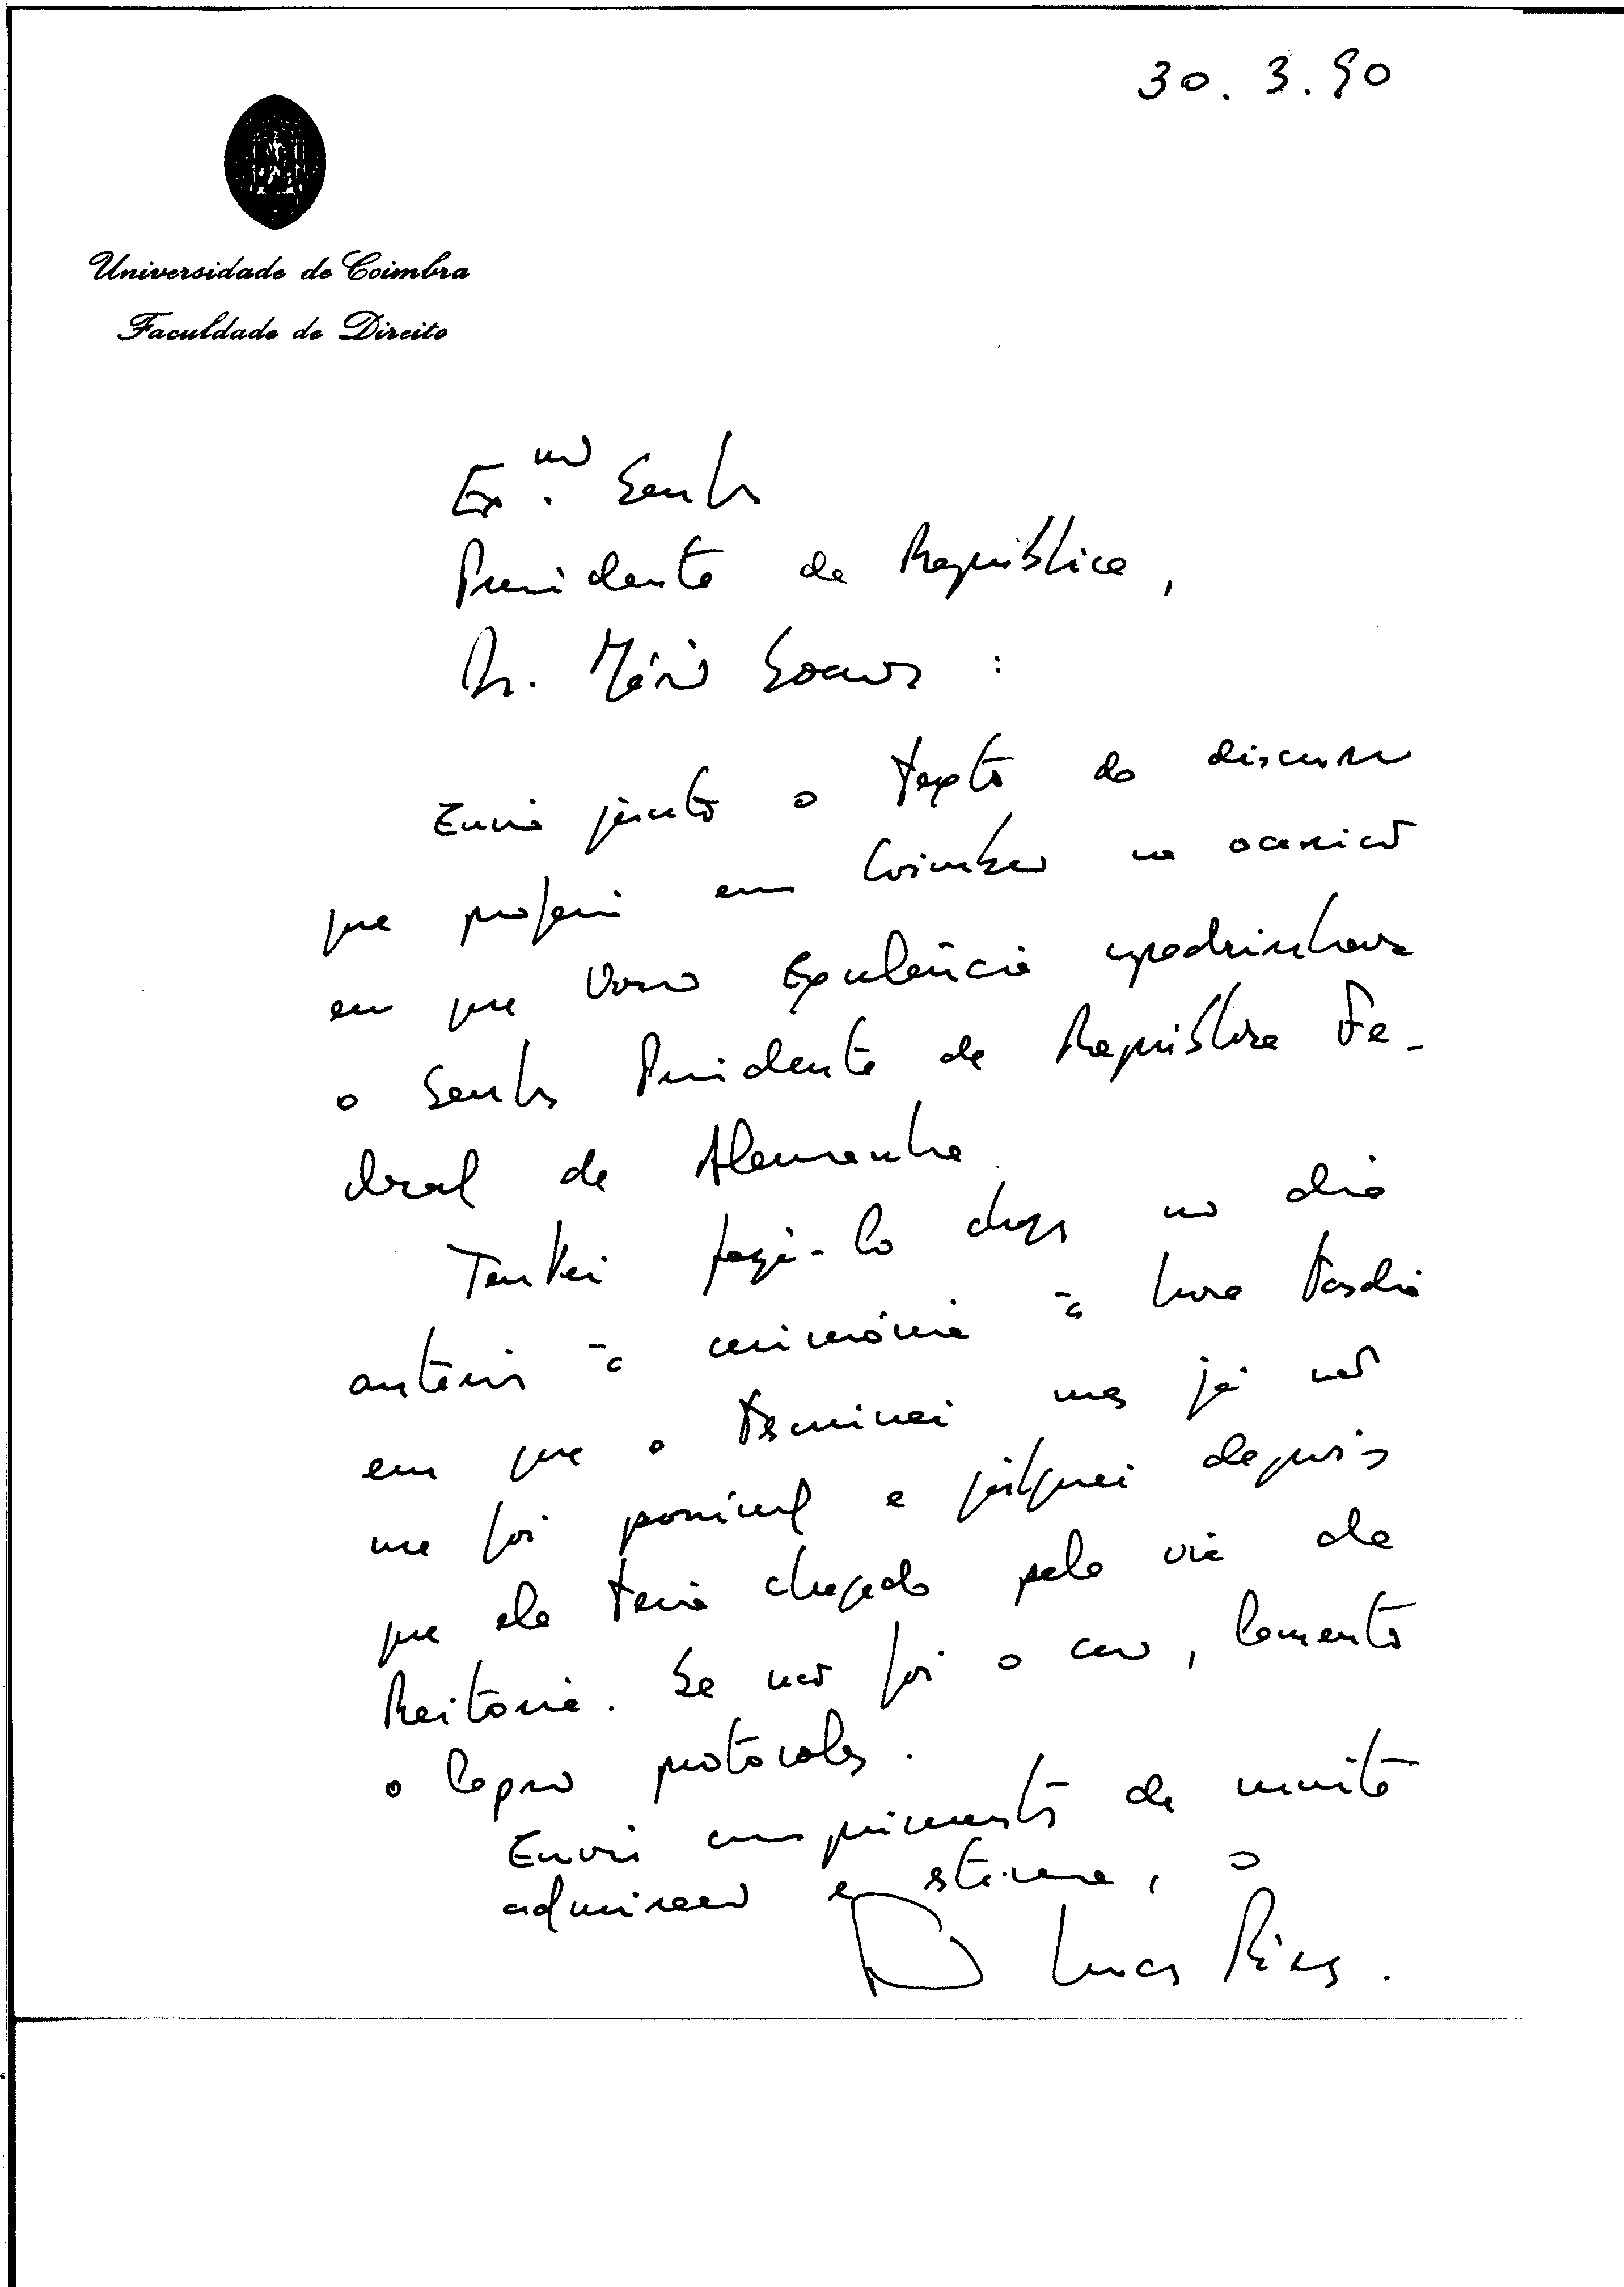 30.3.90
Universidade de Coimbra
Faculdade de Direito
Ex.mo Senhor
Presidente da República,
Dr. Mário Soares :
Envio junto o texto do discurso
que proferi em Coimbra na ocasião
em que Vossa Excelência apadrinhava
o Senhor Presidente da República Fe-
deral da Alemanha.
Tentei fazê-lo chegar no dia
anterior à cerimónia à hora tardia
em que o terminei mas já não
me foi possível e julguei depois
que ele teria chegado pela via da
Reitoria. Se não foi o caso, lamento
o lapso protocolar.
Envio cumprimentos de muita
admiração e estima, o
Lucas Pires.